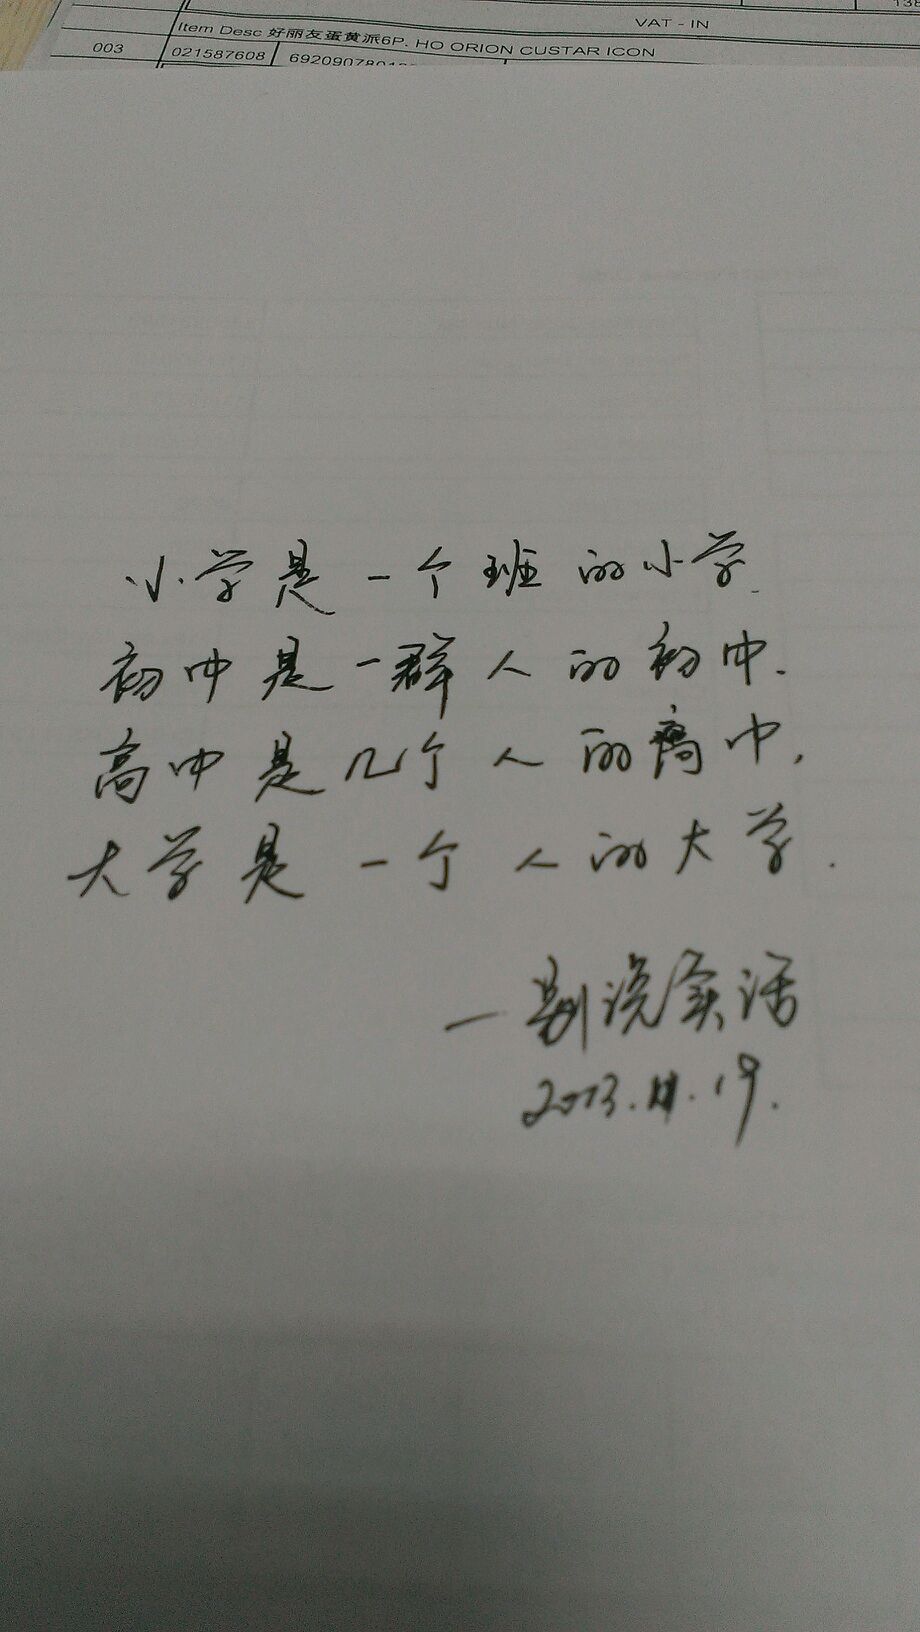 VAT - IN
Item Desc 好丽友蛋黄派6P. HO ORION CUSTAR ICON
003 021587608
小学是一个班的小学.
初中是一群人的初中.
高中是几个人的高中,
大学是一个人的大学.
—别说实话
2013.11.19.